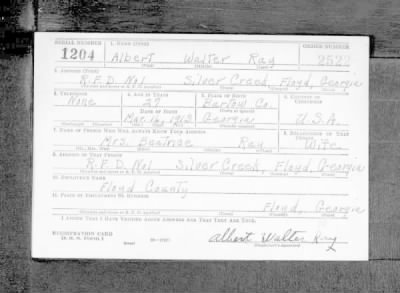 SERIAL NUMBER 1. NAME (Print) ORDER NUMBER
1204 Albert Walter Ray 2522
(First) (Middle) (Last)
2. ADDRESS (Print)
R.F.D. No1 Silver Creek, Floyd, Georgia
3. TELEPHONE 4. AGE IN YEARS 5. PLACE OF BIRTH 6. COUNTRY OF CITIZENSHIP
None 27 Bartow Co.
DATE OF BIRTH
Mar. 16, 1913 Georgia U.S.A.
7. NAME OF PERSON WHO WILL ALWAYS KNOW YOUR ADDRESS 8. RELATIONSHIP OF THAT PERSON
Mrs. Beatrice Ray Wife
9. ADDRESS OF THAT PERSON
R.F.D. No1 Silver Creek, Floyd, Georgia
10. EMPLOYER'S NAME
Floyd County
11. PLACE OF EMPLOYMENT OR BUSINESS
Floyd, Georgia
I AFFIRM THAT I HAVE VERIFIED ABOVE ANSWERS AND THAT THEY ARE TRUE.
REGISTRATION CARD
D. S. S. FORM 1 Albert Walter Ray